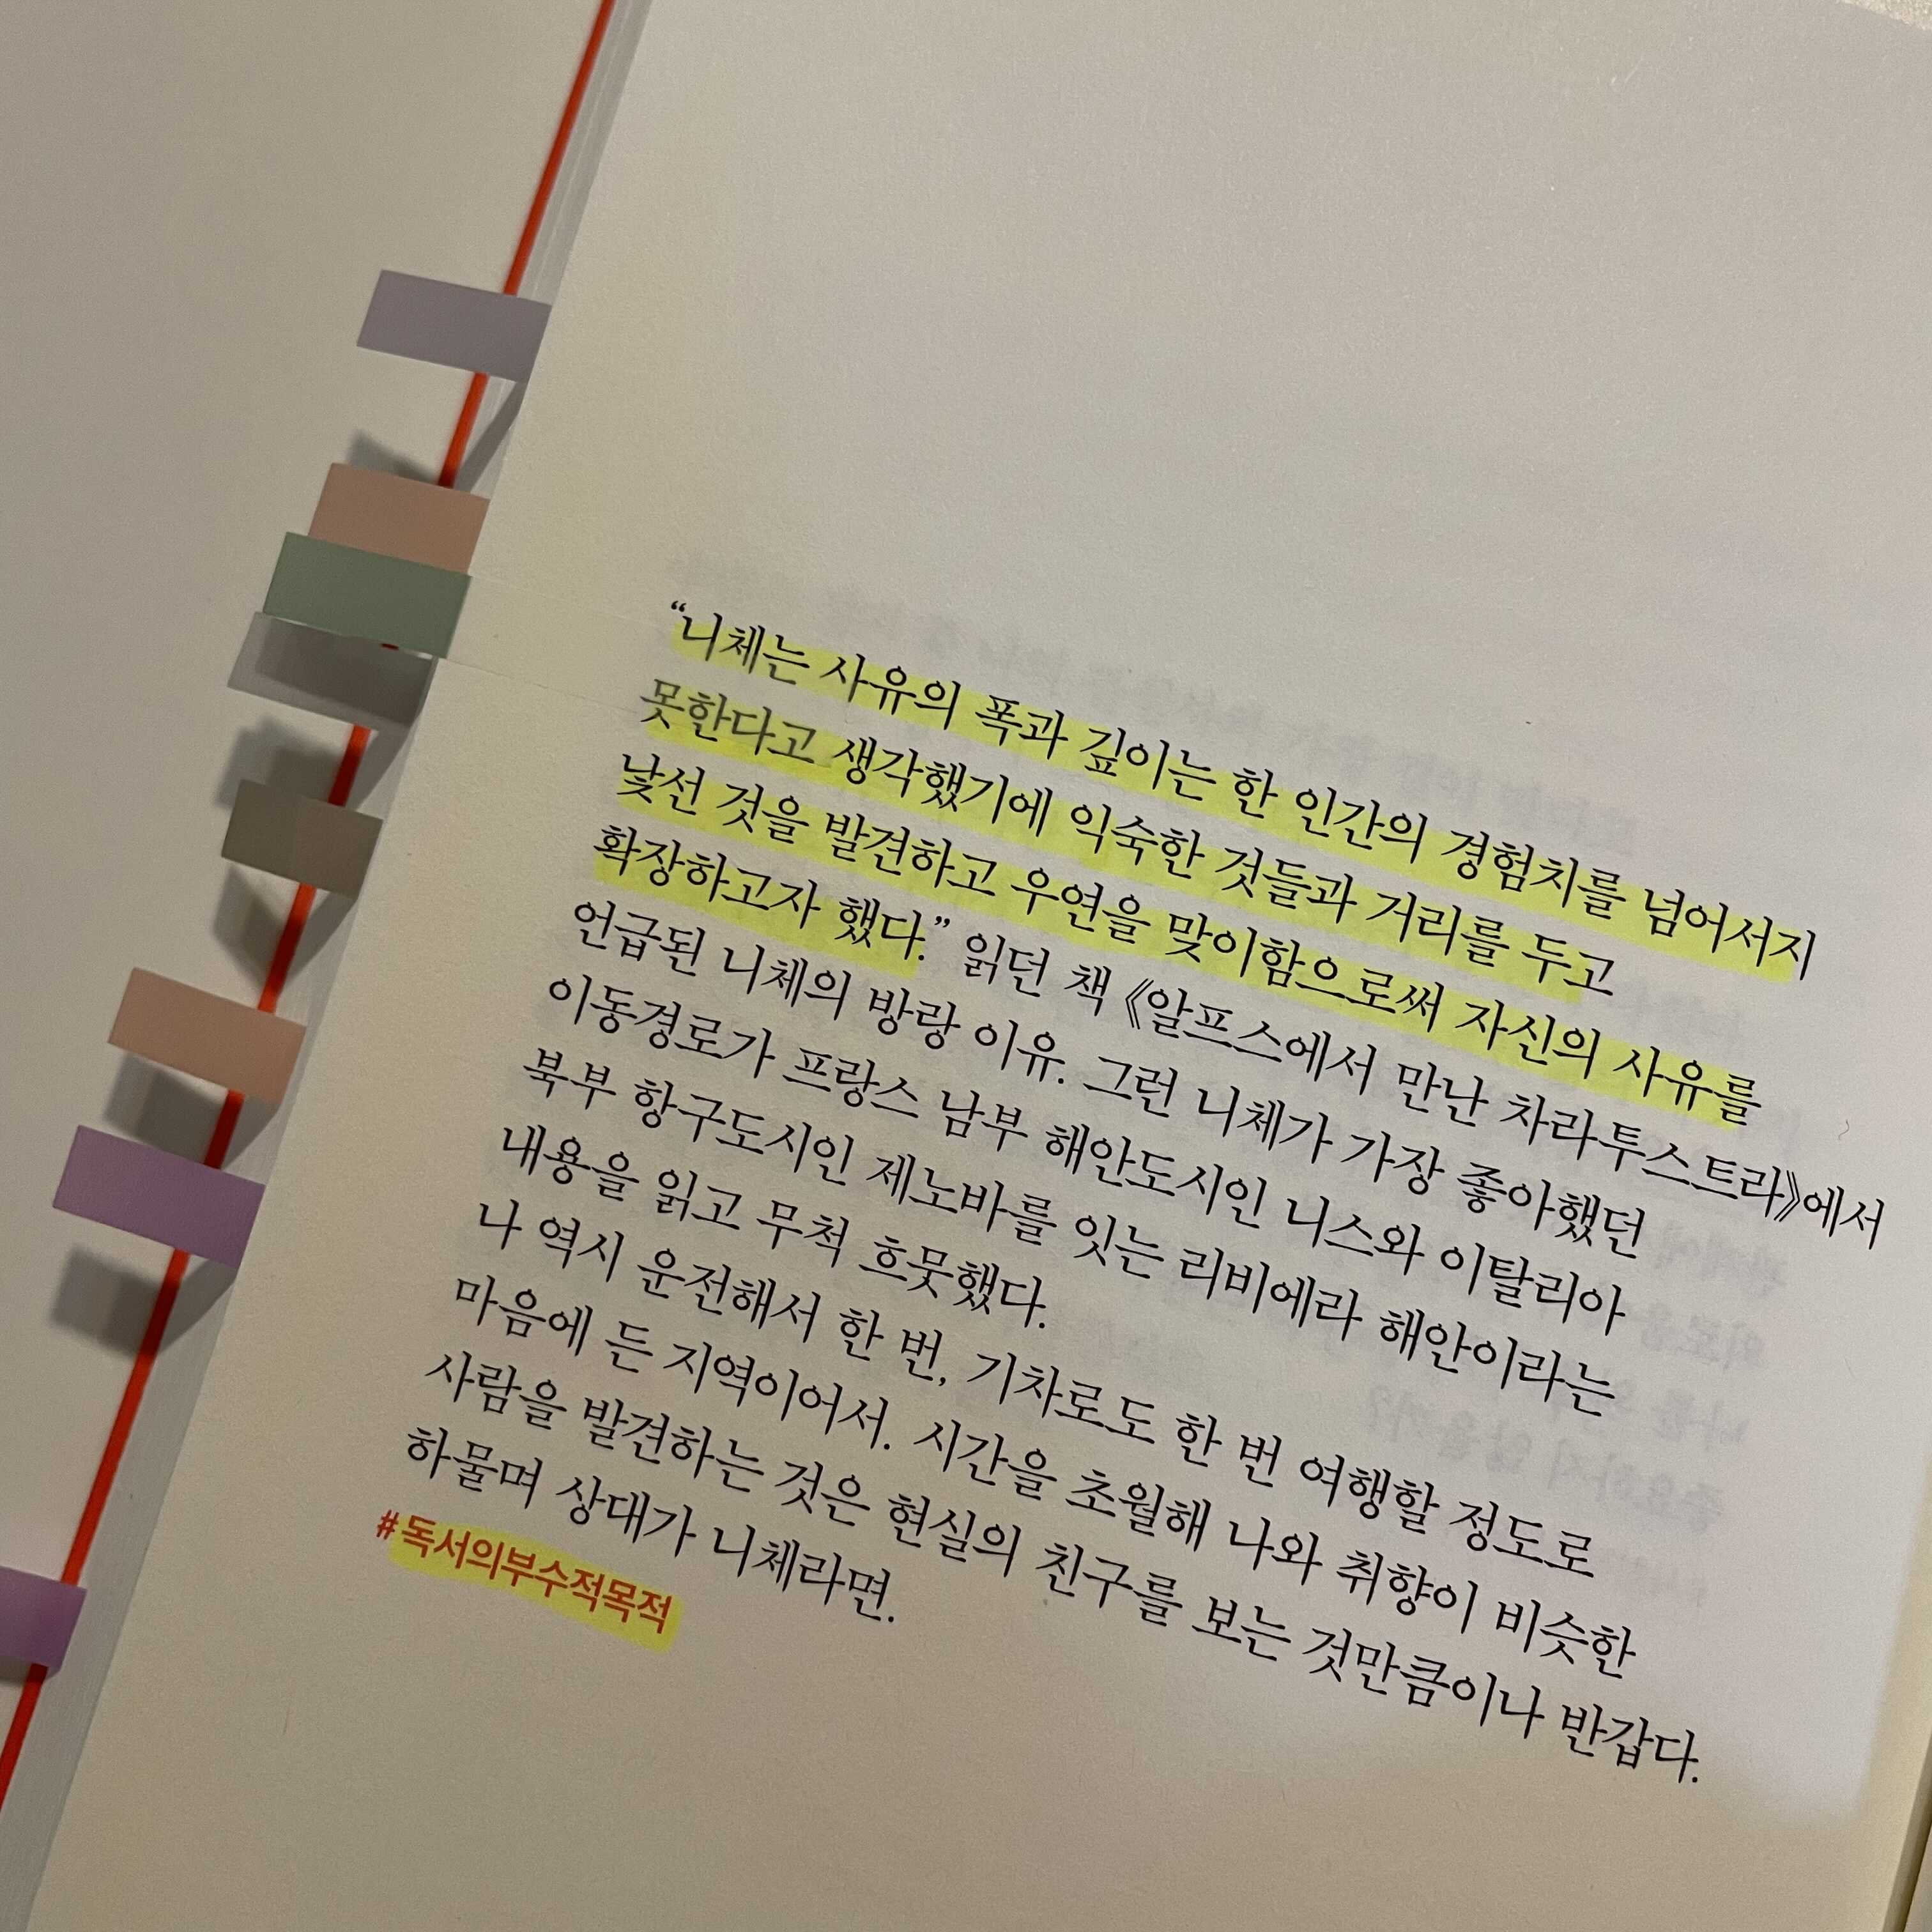 “니체는 사유의 폭과 깊이는 한 인간의 경험치를 넘어서지
못한다고 생각했기에 익숙한 것들과 거리를 두고
낯선 것을 발견하고 우연을 맞이함으로써 자신의 사유를
확장하고자 했다.” 읽던 책 《알프스에서 만난 차라투스트라》에서
언급된 니체의 방랑 이유. 그런 니체가 가장 좋아했던
이동경로가 프랑스 남부 해안도시인 니스와 이탈리아
북부 항구도시인 제노바를 잇는 리비에라 해안이라는
내용을 읽고 무척 흐뭇했다.
나 역시 운전해서 한 번, 기차로도 한 번 여행할 정도로
마음에 든 지역이어서. 시간을 초월해 나와 취향이 비슷한
사람을 발견하는 것은 현실의 친구를 보는 것만큼이나 반갑다.
하물며 상대가 니체라면.
#독서의부수적목적